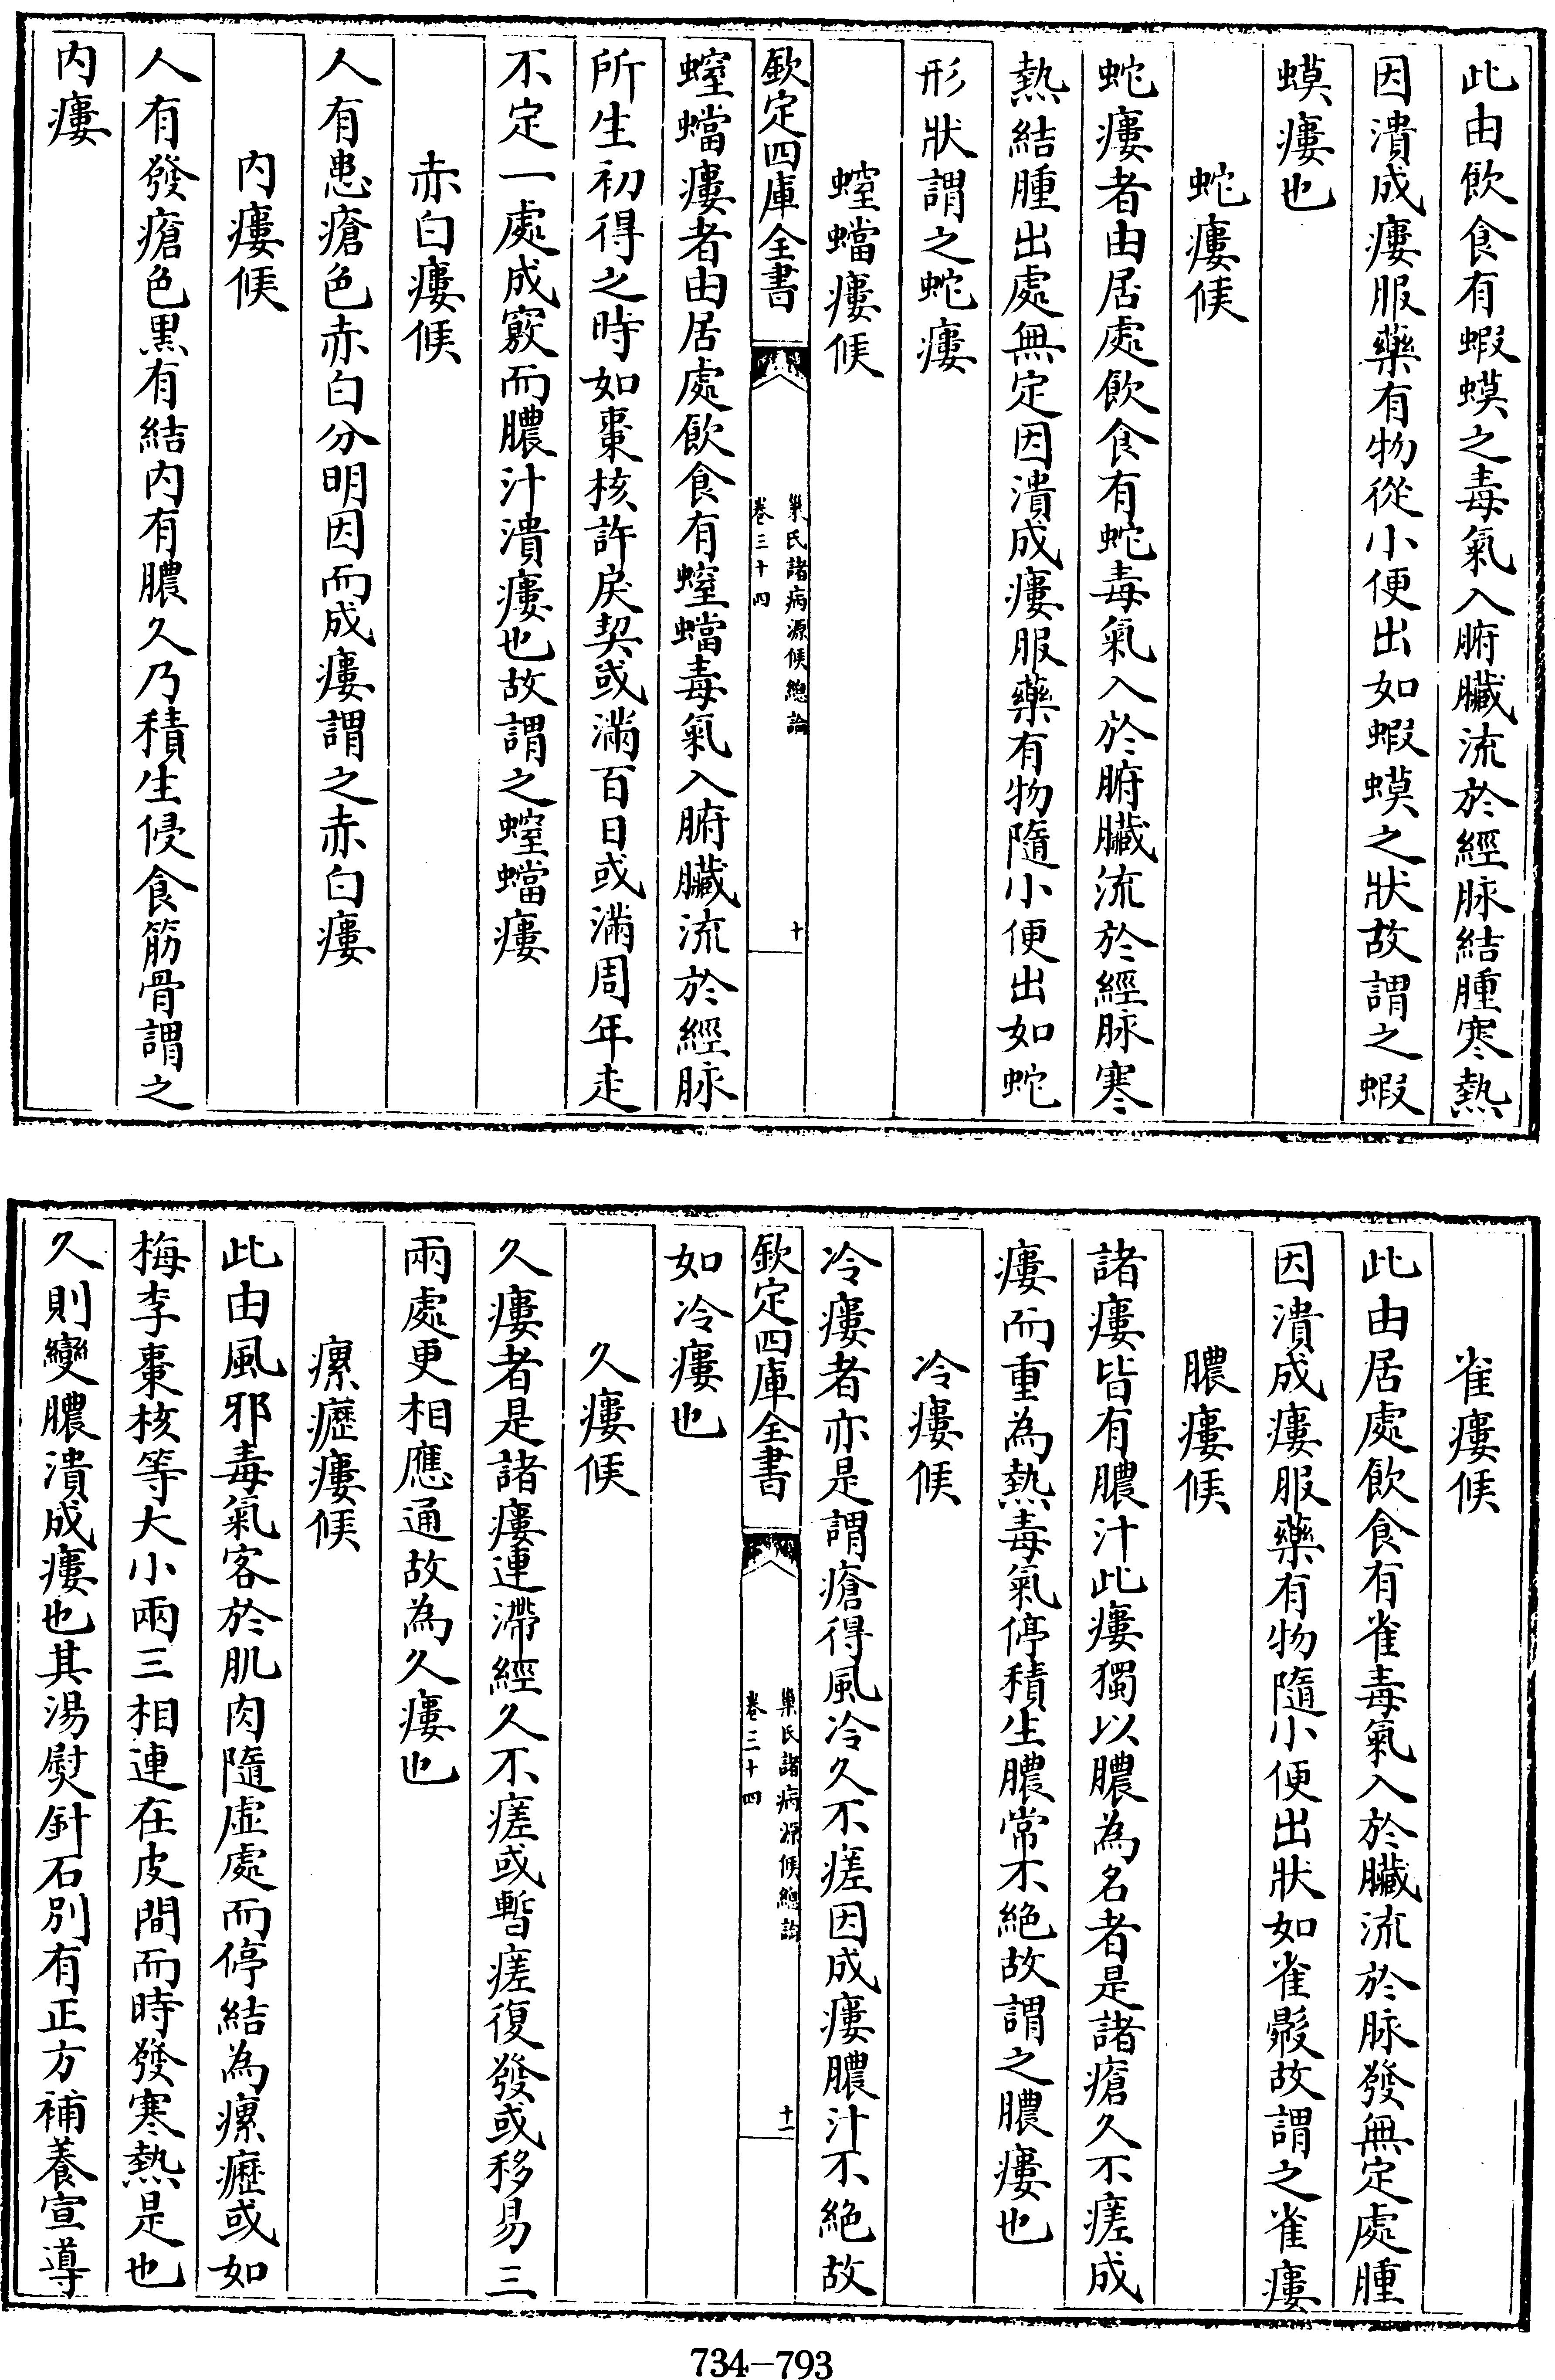 此由飲食有蝦蟆之毒氣入腑臟流於經脉結腫寒熱
因潰成瘻服藥有物從小便出如蝦蟆之狀故謂之蝦
蟆瘻也
蛇瘻候
蛇瘻者由居處飲食有蛇毒氣入於腑臟流於經脉寒
熱結腫出處無定因潰成瘻服藥有物隨小便出如蛇
形狀謂之蛇瘻
螲蟷瘻候
欽定四庫全書
巢氏諸病源候總論
卷三十四
十
螲蟷瘻者由居處飲食有螲蟷毒氣入腑臟流於經脉
所生初得之時如棗核許戾契或滿百日或滿周年走
不定一處成竅而膿汁潰瘻也故謂之螲蟷瘻
赤白瘻候
人有患瘡色赤白分明因而成瘻謂之赤白瘻
内瘻候
人有發瘡色黒有結内有膿久乃積生侵食筋骨謂之
内瘻
雀瘻候
此由居處飲食有雀毒氣入於臟流於脉發無定處腫
因潰成瘻服藥有物隨小便出狀如雀鷇故謂之雀瘻
膿瘻候
諸瘻皆有膿汁此瘻獨以膿為名者是諸瘡久不瘥成
瘻而重為熱毒氣停積生膿常不絶故謂之膿瘻也
冷瘻候
冷瘻者亦是謂瘡得風冷久不瘥因成瘻膿汁不絶故
欽定四庫全書
巢氏諸病源候總論
卷三十四
十一
如冷瘻也
久瘻候
久瘻者是諸瘻連滯經久不瘥或暫瘥復發或移易三
兩處更相應通故為久瘻也
瘰癧瘻候
此由風邪毒氣客於肌肉隨虛處而停結為瘰癧或如
梅李棗核等大小兩三相連在皮間而時發寒熱是也
久則變膿潰成瘻也其湯熨針石別有正方補養宣導
734-793